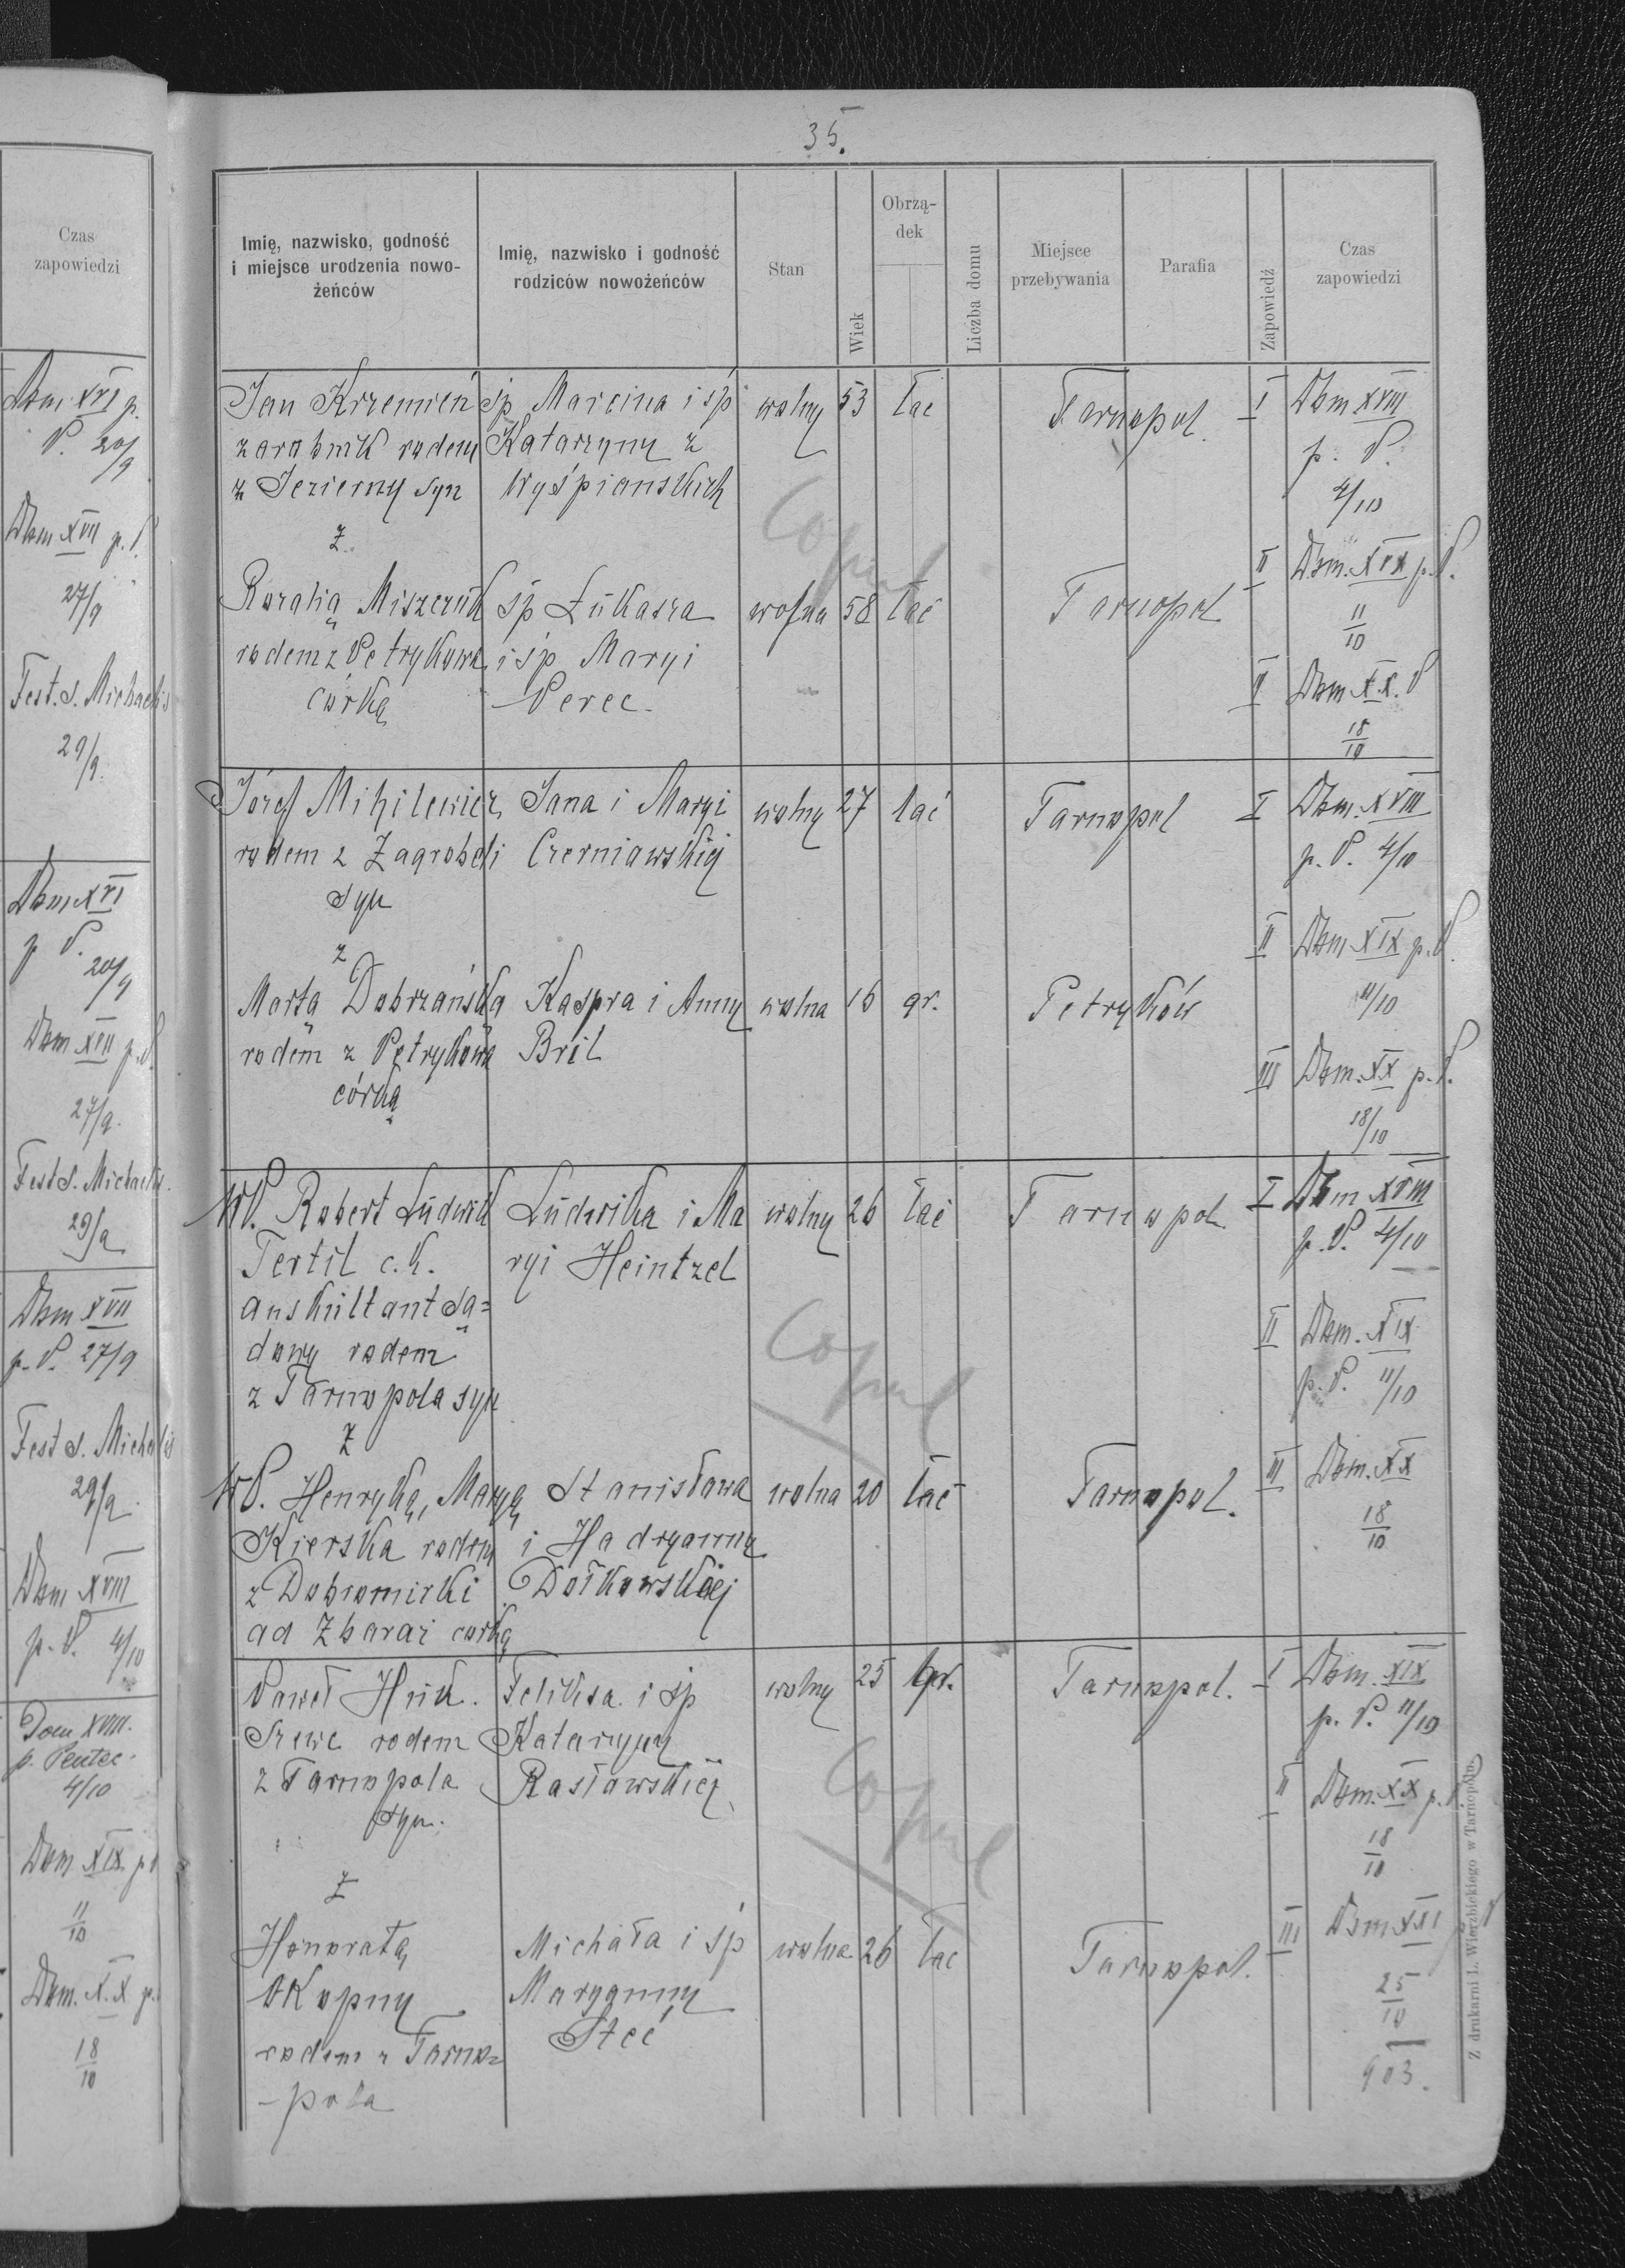 35.
Czas
zapowiedzi
Dom XVI p.
P. 20/9
Dom XVII p. P.
27/9
Fest. S. Michaelis
29/9.
Dom XVI
p P. 20/9
Dom XVII p. P.
27/9.
Fest S. Michaelis.
29/9
Dom XVII
p. P. 27/9
Fest S. Michelis
29/9.
Dom XVIII
p. P. 4/10
Dom XVIII.
p. Pentec.
4/10
Dom XIX p P
11/10
Dom. X.X p.
18/10
Imię, nazwisko, godność
i miejsce urodzenia nowo-
żeńców
Imię, nazwisko i godność
rodziców nowożeńców
Stan
Wiek
Obrzą-
dek
Liczba domu
Miejsce
przebywania
Parafia
Zapowiedź
Czas
zapowiedzi
Jan Krzemień śp Marcina i śp wolny 53 łac Tarnopol. I Dom XVIII
zarobnik rodem Katarzyny z p. P.
z Jezierny syn Wyśpianskich 4/10
Copul
z II Dom. XIX p. P.
Rozalią Miszczuk śp Łukasza wolna 58 łać Tarnopol 11/10
rodem z Petrykowa i śp Maryi II Dom X.X. P
córką Perec. 18/10
Józef Mihilewicz Jana i Maryi wolny 27 łać Tarnopol I Dom. XVIII
rodem z Zagrobeli Czerniawskiej p. P. 4/10
syn
z II Dom XIX p. P.
Martą Dobrzańską Kaspra i Anny wolna 16 gr. Petryków 11/10
rodem z Petrykowa Bril III Dom. XX p. P.
córką 18/10
WP. Robert Ludwik Ludwika i Ma wolny 26 łać Tarnopol I Dom XVIII
Tertil c.k. ryi Heintzel p. P. 4/10
auskultant Są=
dowy rodem II Dom. XIX
z Tarnopola syn p. P. 11/10
Copul
z
WP. Henryką, Maryą Stanisława wolna 20 łać Tarnopol. III Dom. XX
Kierska rodem i Hadryanny 18/10
z Dobromirki Dołkowskiej
ad Zbaraż córką
Paweł Huk. Feliksa i śp wolny 25 gr. Tarnopol. I Dom. XIX
Szewc rodem Katarzyny p. P. 11/10
z Tarnopola Rasławskiej II Dom. XX p. P.
syn. 18/10
Copul
z
Honoratą Michała i śp wolna 26 łac Tarnopol. III Dom XXI p P
Okopny Maryanny 25/10
rodem z Tarno= Steć 903.
-pola
Z drukarni L. Wierzbickiego w Tarnopolu.